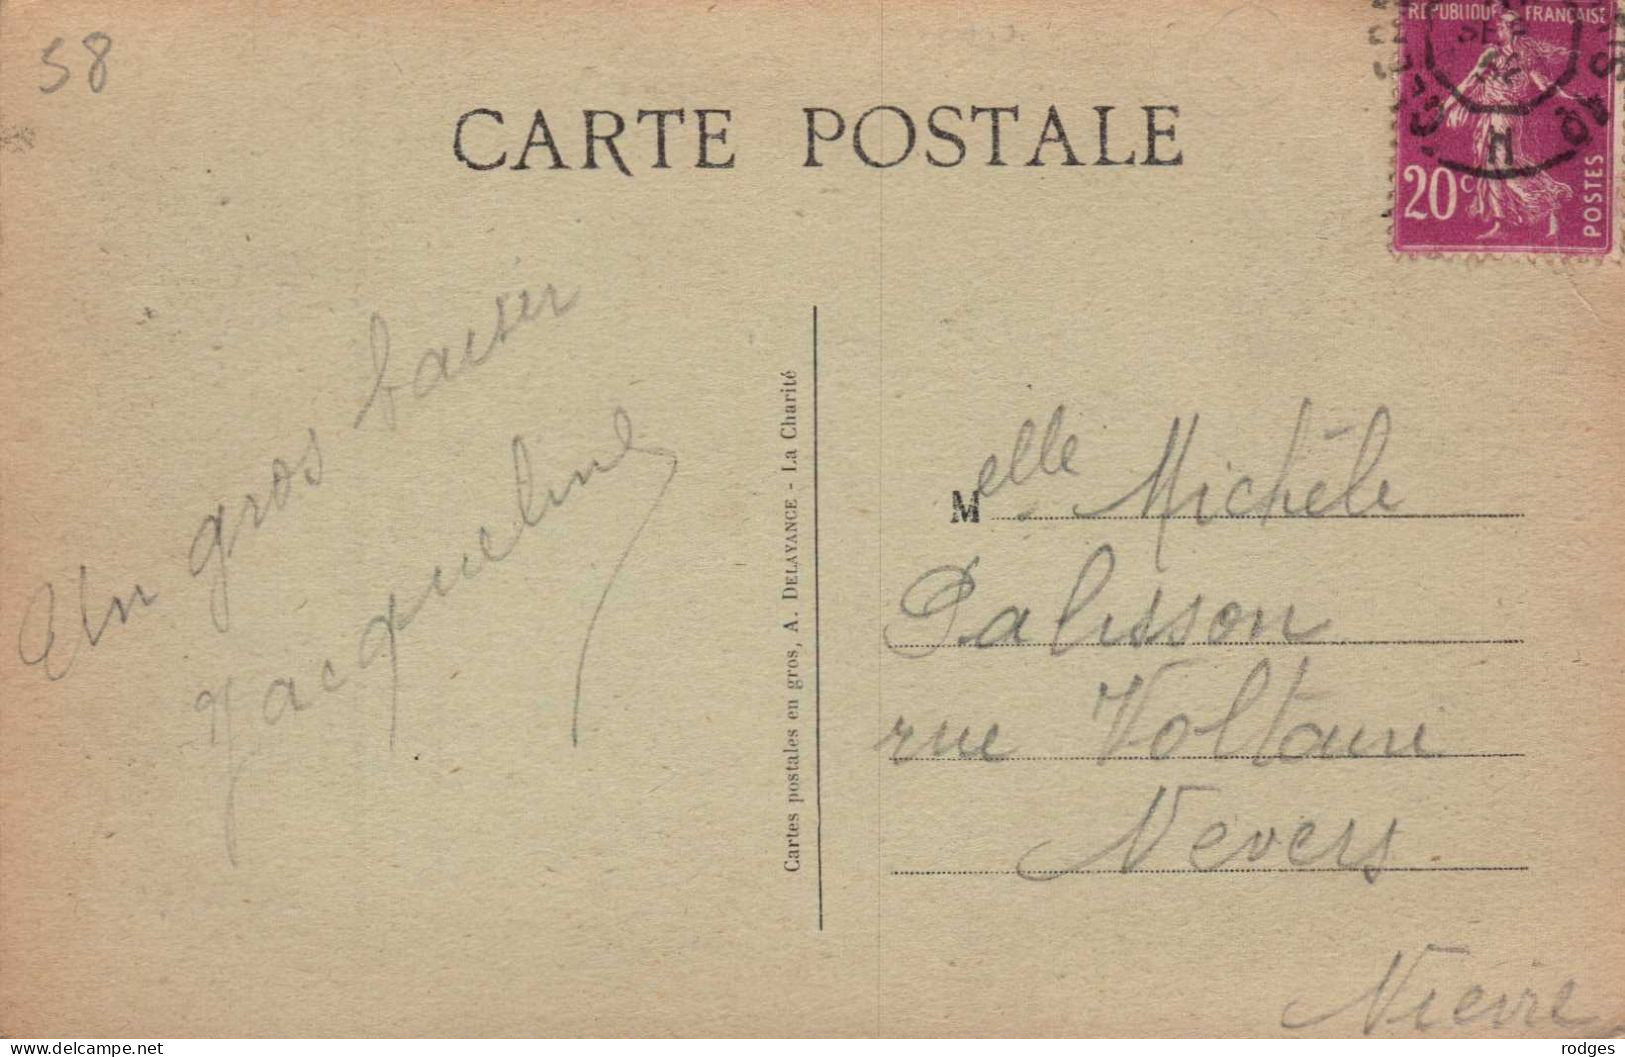 58
CARTE POSTALE
REPUBLIQUE FRANÇAISE
20c
POSTES
Un gros baiser
Jacqueline
Cartes postales en gros, A. DELAYANCE - La Charité
Melle Michèle
Palisson
rue Voltaire
Nevers
Nièvre
www.delcampe.net
rodges